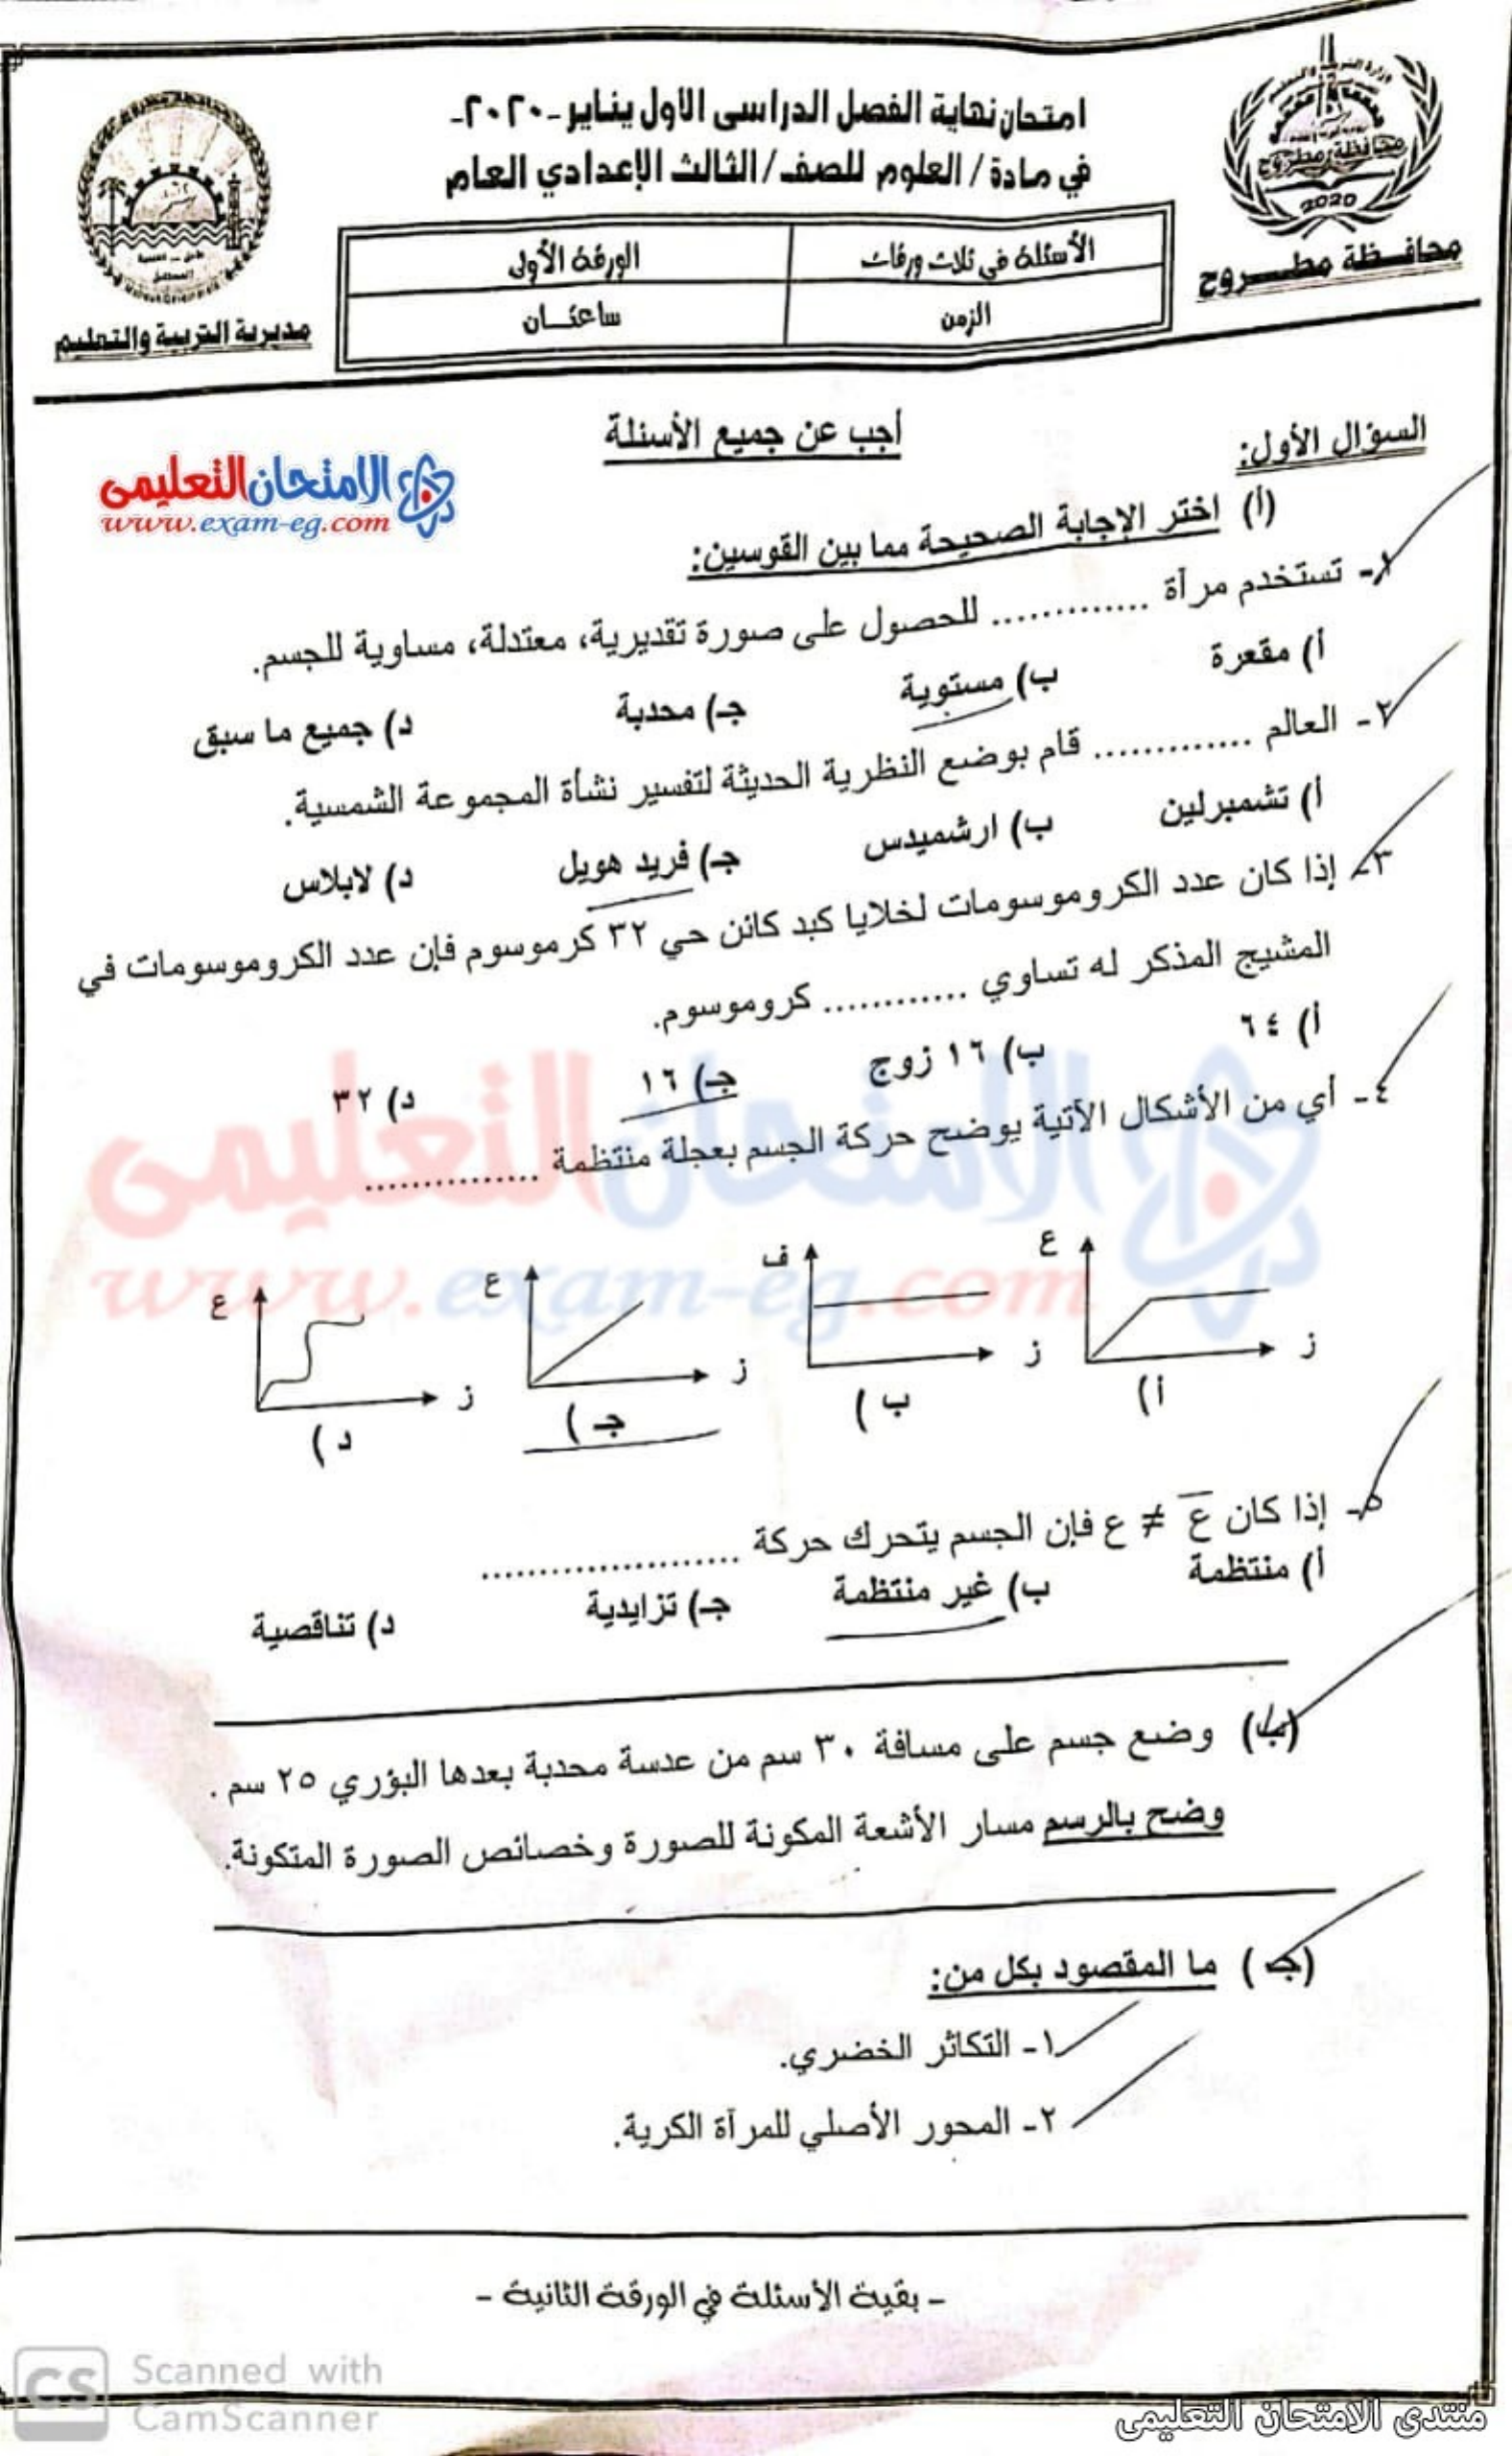 امتحان نهاية الفصل الدراسى الاول يناير -٢٠٢٠-
في مادة / العلوم للصف / الثالث الإعدادي العام
محافظة مطروح
2020
محافظة مطروح
مديرية التربية والتعليم
الأسئلة في ثلاث ورقات
الورقة الأولى
الزمن
ساعتان
أجب عن جميع الأسئلة
السؤال الأول:
الامتحان التعليمى
www.exam-eg.com
(أ) اختر الإجابة الصحيحة مما بين القوسين:
١- تستخدم مرآة ............. للحصول على صورة تقديرية، معتدلة، مساوية للجسم.
أ) مقعرة ب) مستوية جـ) محدبة د) جميع ما سبق
٢- العالم ............. قام بوضع النظرية الحديثة لتفسير نشأة المجموعة الشمسية.
أ) تشمبرلين ب) ارشميدس جـ) فريد هويل د) لابلاس
٣- إذا كان عدد الكروموسومات لخلايا كبد كائن حي ٣٢ كرموسوم فإن عدد الكروموسومات في
المشيج المذكر له تساوي ............ كروموسوم.
أ) ٦٤ ب) ١٦ زوج جـ) ١٦ د) ٣٢
٤- أي من الأشكال الآتية يوضح حركة الجسم بعجلة منتظمة ...............
الامتحان التعليمى
www.exam-eg.com
ع ز ف ز ع ز ع ز
أ) ب) جـ) د)
٥- إذا كان ع̅ ≠ ع فإن الجسم يتحرك حركة ......................
أ) منتظمة ب) غير منتظمة جـ) تزايدية د) تناقصية
(ب) وضع جسم على مسافة ٣٠ سم من عدسة محدبة بعدها البؤري ٢٥ سم .
وضح بالرسم مسار الأشعة المكونة للصورة وخصائص الصورة المتكونة.
(جـ) ما المقصود بكل من:
١- التكاثر الخضري.
٢- المحور الأصلي للمرآة الكرية.
- بقية الأسئلة في الورقة الثانية -
CS Scanned with
CamScanner
منتدى الامتحان التعليمى